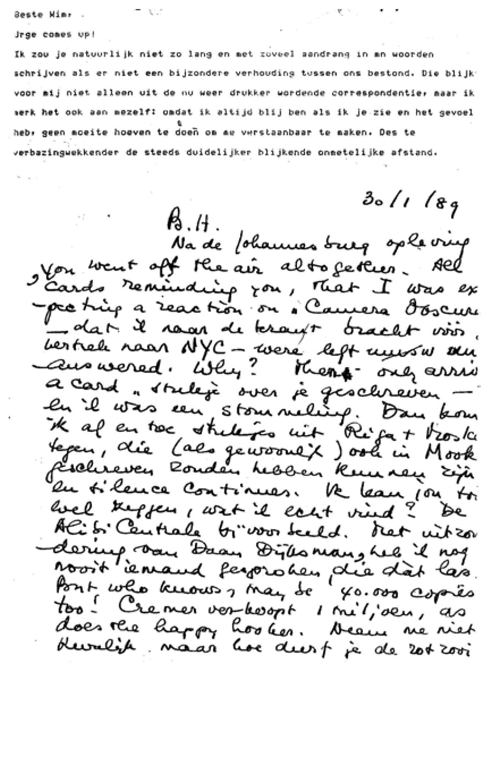 Beste Wim,
Urge comes up!
Ik zou je natuurlijk niet zo lang en met zoveel aandrang in mn woorden
schrijven als er niet een bijzondere verhouding tussen ons bestond. Die blijk
voor mij niet alleen uit de nu weer drukker wordende correspondentie, maar ik
merk het ook aan mezelf: omdat ik altijd blij ben als ik je zie en het gevoel
heb, geen moeite hoeven te doen om me verstaanbaar te maken. Des te
verbazingwekkender de steeds duidelijker blijkende onmetelijke afstand.
30/1/89
B.H.
Na de Johannesburg opleving
you went off the air altogether. All
cards reminding you, that I was ex
-pecting a reaction on Camera Obscura
— dat ik naar de bracht vóór
vertrek naar NYC — were left
answered. Why? Then only arriv
a card "stukje over je geschreven —
en ik was een stommeling. Dan kom
ik af en toe stukjes uit Riga +
tegen, die (als gewoonlijk) ook in Mook
geschreven zouden hebben kunnen zijn
en silence continues. Ik kan jou to
wel zeggen, wat ik echt vind? De
Alibi Centrale bijvoorbeeld. Met uitzon
-dering van Daan Dijksman, heb ik nog
nooit iemand gesproken, die dàt las.
But who knows, may be 40.000 copies
too! Cremer verkoopt 1 miljoen, as
does the happy hooker. Neem me niet
kwalijk maar hoe durf je de rotzooi